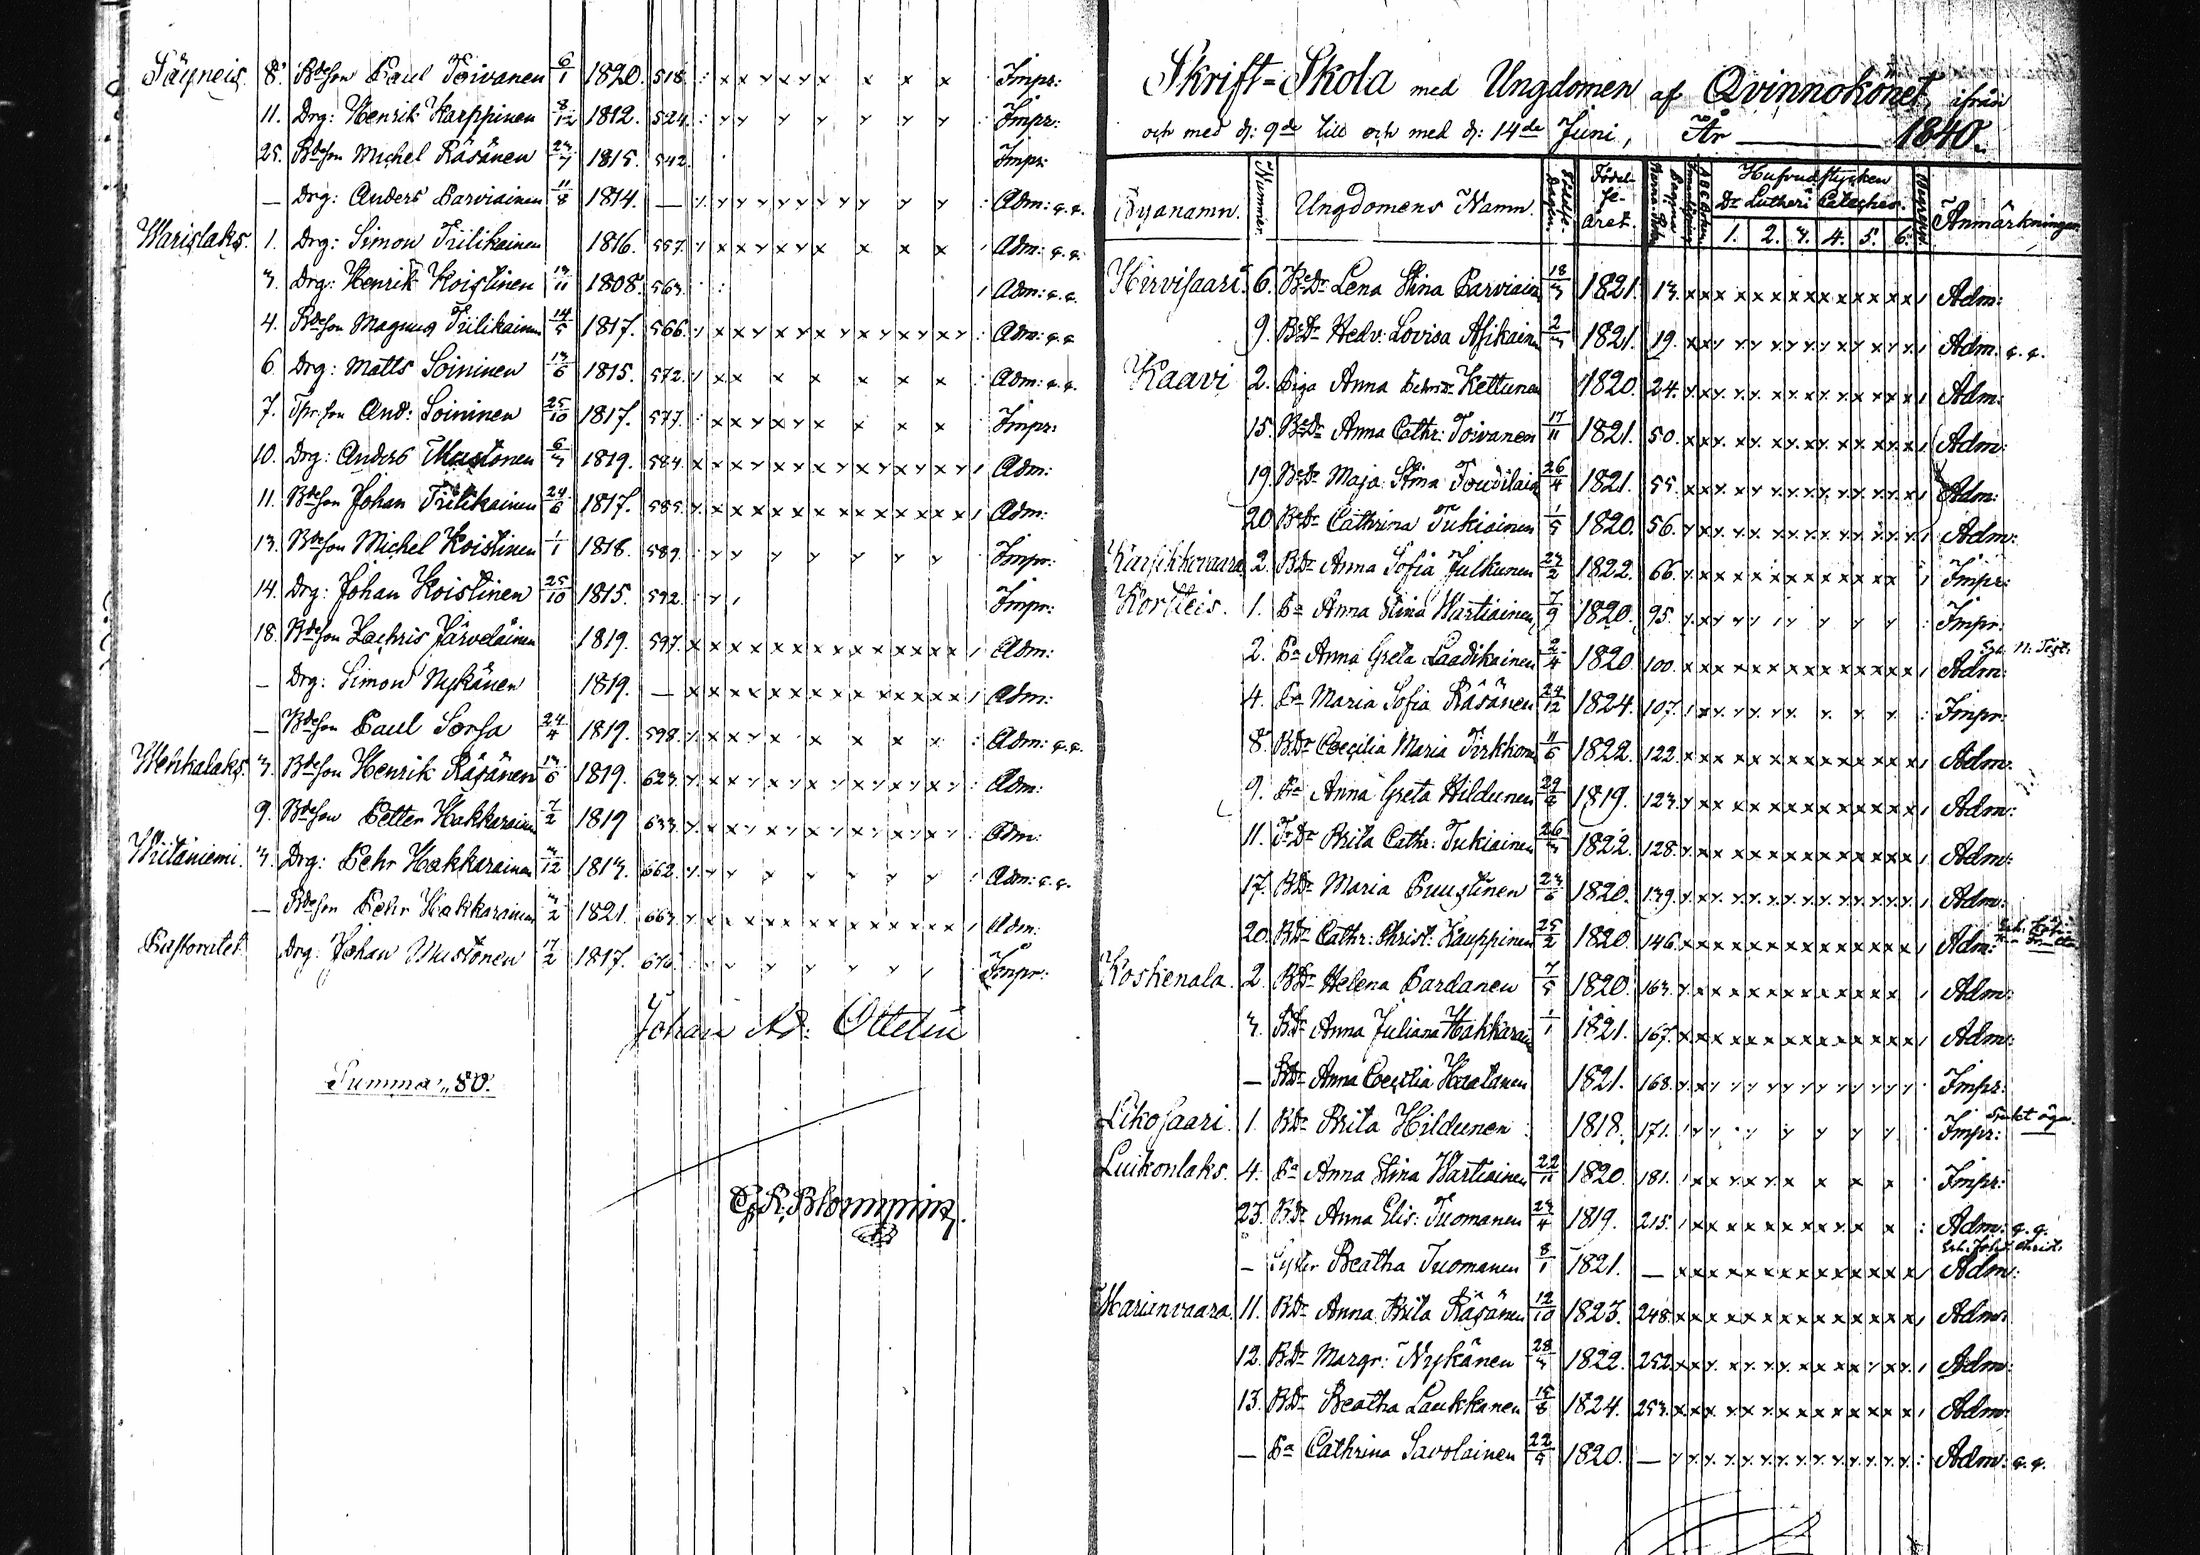 Säyneis. 8. Bdeson Paul Toivanen 6/1 1820. 518. Impr:
11. Drg: Henrik Karppinen 8/12 1812. 524. Impr:
25. Bdeson Michel Räsänen 1815. 542. Impr:
— Drg: Anders Parviainen 11/8 1814. — Adm: q.q.
Warislaks. 1. Drg: Simon Tiilikainen 1816. 557. Adm: q.q.
3. Drg: Henrik Koistinen 13/11 1808. 563. Adm: q.q.
4. Bdeson Magnus Tiilikainen 14/5 1817. 566. Adm: q.q.
6. Drg: Matts Soininen 13/6 1815. 572. Adm: q.q.
7. And: Soininen 25/10 1817. 577. Impr:
10. Drg: Anders Mustonen 6/3 1819. 584. Adm:
11. Bdeson Johan Tiilikainen 24/6 1817. 585. Adm:
13. Bdeson Michel Koistinen 1/1 1818. 589. Impr:
14. Drg: Johan Koistinen 25/10 1815. 592. Impr:
18. Bdeson Zachris Järveläinen 1819. 597. Adm:
— Drg: Simon Nykänen 1819. — Adm:
— Bdeson Paul Sorsa 24/4 1819. 598. Adm: q.q.
Wehkalaks. 3. Bdeson Henrik Räsänen 13/6 1819. 623. Adm:
9. Bdeson Petter Hakkarainen 7/2 1819 633. Adm:
Wiitaniemi. 3. Drg: Pehr Hakkarainen 3/12 1813. 662. Adm: q.q.
— Bdeson Pehr Hakkarainen 3/2 1821. 663. Adm:
Pastoratet. Drg: Johan Mustonen 17/2 1817. 676. Impr:
Johan Ad: Ottelin
Summa „80.
Skrift-Skola med Ungdomen af Qvinnokönet, ifrån
och med d: 9de till och med d: 14de Juni, År 1840.
Byanamn. Nummer. Ungdomens Namn. Födelse-dagen. Födel-se-året. Hufvudstycken Dr Lutheri Catechis. Anmärkningar.
1. 2. 3. 4. 5. 6.
Hirvisaari. 6. BdDr Lena Stina Parviain 18/3 1821. 13. Adm:
9. BdDr Hedv: Lovisa Asikain 2/3 1821. 19. Adm: q.q.
Kaavi 2. Piga Anna Pehrsdr Kettunen 1820. 24. Adm:
15. BdDr Anna Cathr: Toivanen 17/11 1821. 50. Adm:
19. BdDr Maja Stina 26/4 1821. 55. Adm:
20. BdDr Cathrina Tukiainen 1/5 1820. 56. Adm:
Karsikkovaara. 2. BDr Anna Sofia Julkunen 1822. 66. Impr:
Kortteis. 1. Pa Anna Stina Wartiainen 7/9 1820. 95. Impr:
2. Pa Anna Greta Laadikainen 2/4 1820 100. Adm: N: Test:
4. Pa Maria Sofia Räsänen 24/12 1824. 107. Impr:
8. BDr Coecilia Maria Pirkkon 11/6 1822. 122. Adm:
9. Pa Anna Greta Hildunen 1819. 123. Adm:
11. Brita Cathr: Tukiainen 26/3 1822. 128. Adm:
17. BDr Maria Puustinen 23/6 1820. 139. Adm:
20. BDr Cathr: Christ: Kauppinen 25/2 1820. 146. Adm:
Koskenala. 2. BDr Helena Pardanen 7/5 1820. 163. Adm:
3. BDr Anna Juliana Hakkarain 1/1 1821. 167. Adm:
— BDr Anna Coecilia Haatanen 1821. 168. Impr:
Likosaari. 1. BDr Brita Hildunen 1818. 171. Impr:
Luikonlaks. 4. Pa Anna Stina Wartiainen 22/11 1820. 181. Impr:
23. BDr Anna Elis: Tuomanen 24/4 1819. 215. Adm: q.q.
— Syster Beatha Tuomanen 8/1 1821. — Adm:
Marienvaara. 11. BDr Anna Brita Räsänen 12/10 1823. 248. Adm:
12. BDr Margr: Nykänen 28/3 1822. 252. Adm:
13. BDr Beatha Laukkanen 15/8 1824. 253. Adm:
— Pa Cathrina Savolainen 22/5 1820. — Adm: q.q.